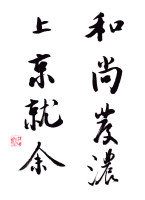 和尚發濃
上京就余